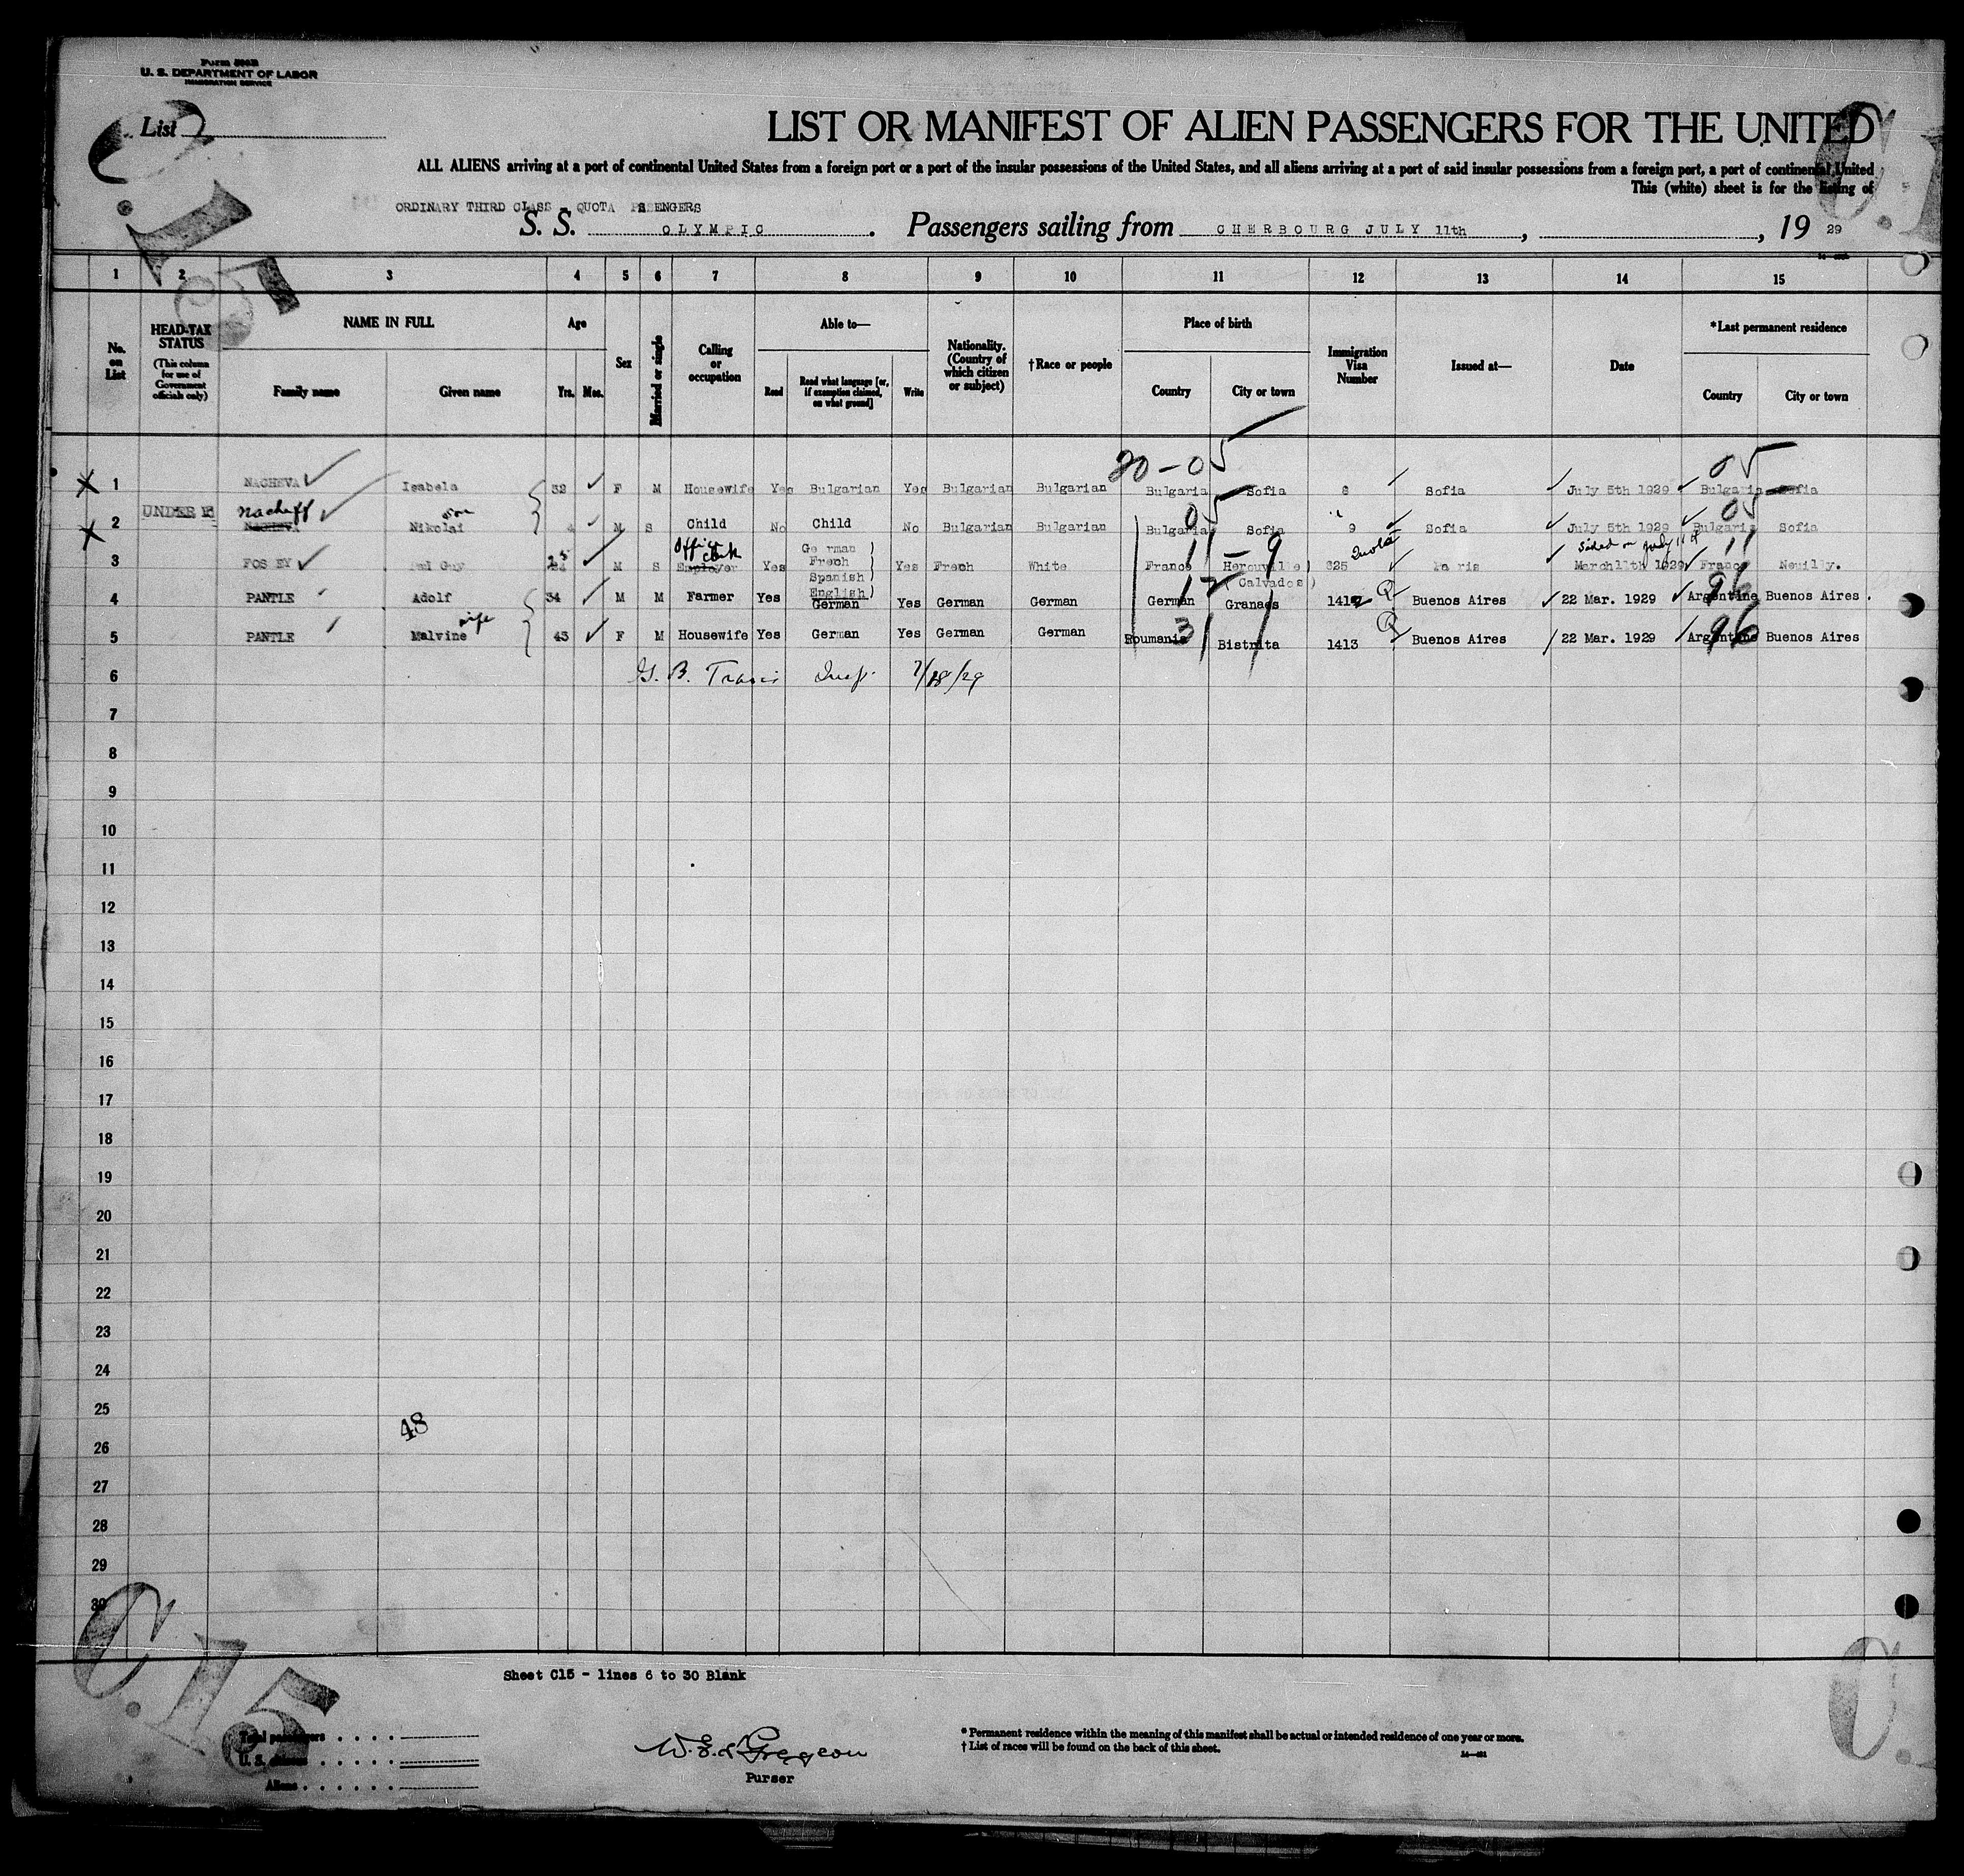 Form 500B
U. S. DEPARTMENT OF LABOR
IMMIGRATION SERVICE
List
LIST OR MANIFEST OF ALIEN PASSENGERS FOR THE UNITED
ALL ALIENS arriving at a port of continental United States from a foreign port or a port of the insular possessions of the United States, and all aliens arriving at a port of said insular possessions from a foreign port, a port of continental United
This (white) sheet is for the listing of
ORDINARY THIRD CLASS - QUOTA PASSENGERS
S. S. OLYMPIC. Passengers sailing from CHERBOURG JULY 11th, , 19 29
C.15
1 2 3 4 5 6 7 8 9 10 11 12 13 14 15
No. on List
HEAD-TAX STATUS (This column for use of Government officials only)
NAME IN FULL Family name Given name
Age Yrs. Mos.
Sex
Married or single
Calling or occupation
Able to— Read Read what language [or, if exemption claimed, on what ground] Write
Nationality. (Country of which citizen or subject)
†Race or people
Place of birth Country City or town
Immigration Visa Number
Issued at—
Date
*Last permanent residence Country City or town
20-05 05
1 NACHEVA Isabela 32 F M Housewife Yes Bulgarian Yes Bulgarian Bulgarian Bulgaria Sofia 8 Sofia July 5th 1929 Bulgaria Sofia
UNDER 16 Nacheff son 05 05
2 NACHEVA Nikolai 4 M S Child No Child No Bulgarian Bulgarian Bulgaria Sofia 9 Sofia July 5th 1929 Bulgaria Sofia
Office clerk German 11-9 Quota Sailed on July 11th 11
3 Guy M S Employer Yes French Spanish English Yes French White France Herouville (Calvados) 825 Paris March 11th 1929 France Neuilly.
12 Q 96
4 PANTLE Adolf 34 M M Farmer Yes German Yes German German German 1412 Buenos Aires 22 Mar. 1929 Argentine Buenos Aires.
wife 31 Q 96
5 PANTLE Malvine 43 F M Housewife Yes German Yes German German Roumania Bistrita 1413 Buenos Aires 22 Mar. 1929 Argentine Buenos Aires
6 G. B. Travis Insp. 7/18/29
7
8
9
10
11
12
13
14
15
16
17
18
19
20
21
22
23
24
25
48
26
27
28
29
30
C.15
Sheet C15 - lines 6 to 30 Blank
Total passengers
U. S. citizens
Aliens
Purser
* Permanent residence within the meaning of this manifest shall be actual or intended residence of one year or more.
† List of races will be found on the back of this sheet.